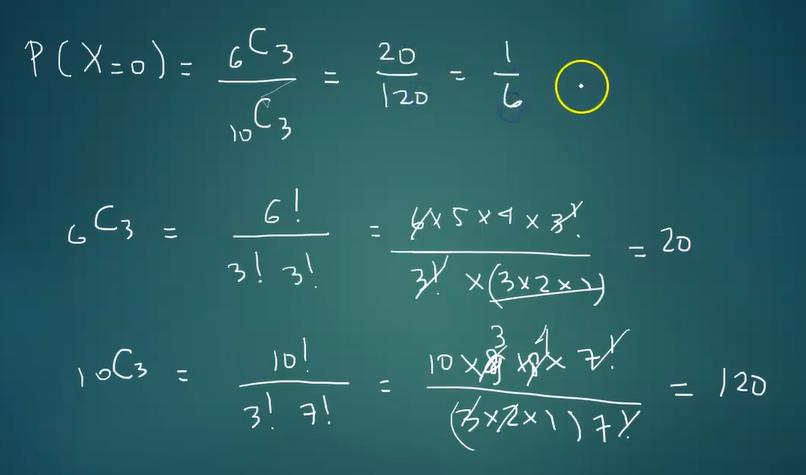 P(X=0) = ₆C₃ / ₁₀C₃ = 20/120 = 1/6
₆C₃ = 6! / 3! 3! = 6×5×4×3! / 3! ×(3×2×1) = 20
₁₀C₃ = 10! / 3! 7! = 10×9 3×8 4×7! / (3×2×1)7! = 120